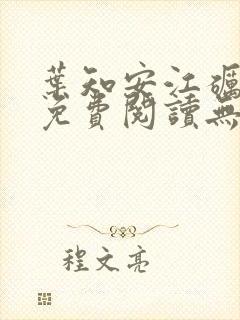 葉知安江礪
免費閱讀無
程文亮